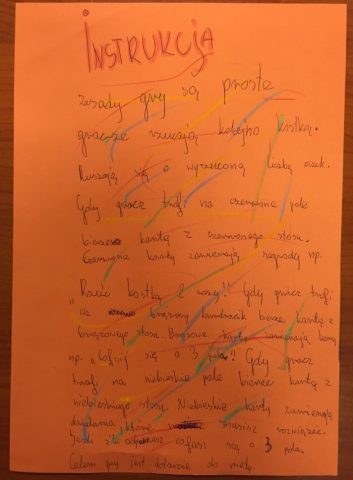 INSTRUKCJA
zasady gry są proste
gracze rzucają kolejno kostką.
Ruszają się o wyrzuconą liczbę oczek.
Gdy gracz trafi na czerwone pole
bierze kartę z czerwonego stosu.
Czerwone karty zawierają nagrodę np.
"Rzuć kostką 2 razy!! Gdy gracz trafi
na brązowy kwadracik bierze kartę z
brązowego stosu. Brązowe karty zawierają karę
np. "Cofnij się o 3 pola"! Gdy gracz
trafi na niebieskie pole bierze kartę z
niebieskiego stosu. Niebieskie karty zawierają
działania które musisz rozwiązać.
Jeśli źle cofasz się o 3 pola.
Celem gry jest dotarcie do mety.